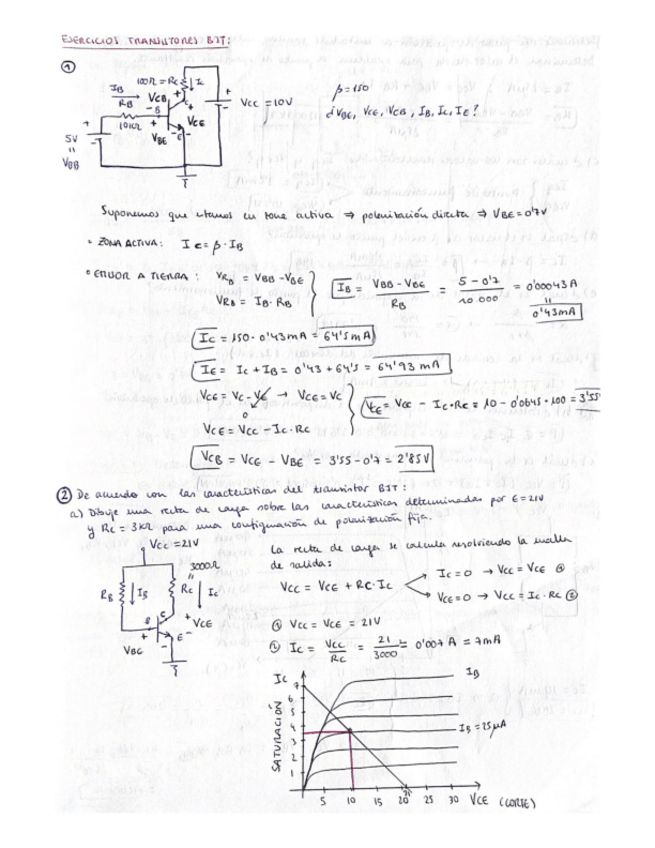 EJERCICIOS TRANSISTORES BJT:
①
100Ω = Rc
Ic
IB
RB
VCB
10KΩ
B
C
E
VCE
VBE
5V
VBB
Vcc = 10V
β = 150
¿VBE, VCE, VCB, IB, Ic, IE?
Suponemos que estamos en zona activa ⇒ polarización directa ⇒ VBE = 0'7V
• ZONA ACTIVA: Ic = β · IB
• EMISOR A TIERRA: VRB = VBB - VBE
VRB = IB · RB
IB = (VBB - VBE) / RB = (5 - 0'7) / 10 000 = 0'00043 A
0'43mA
Ic = 150 · 0'43mA = 64'5mA
IE = Ic + IB = 0'43 + 64'5 = 64'93 mA
VCE = Vc - VE → VCE = Vc
0
VCE = Vcc - Ic · Rc
VCE = Vcc - Ic · Rc = 10 - 0'0645 · 100 = 3'55
VCB = VCE - VBE = 3'55 - 0'7 = 2'85V
② De acuerdo con las características del transistor BJT:
a) Dibuje una recta de carga sobre las características determinadas por E = 21V
y Rc = 3KΩ para una configuración de polarización fija.
Vcc = 21V
3000Ω
RB
IB
Rc
Ic
B
C
E
VCE
VBE
La recta de carga se calcula resolviendo la malla
de salida:
Vcc = VCE + Rc · Ic
Ic = 0 → Vcc = VCE ①
VCE = 0 → Vcc = Ic · Rc ②
① Vcc = VCE = 21V
② Ic = Vcc / Rc = 21 / 3000 = 0'007 A = 7mA
Ic
7
6
5
4
3
2
1
SATURACIÓN
IB
IB = 25 μA
5 10 15 20 21 25 30 VCE (CORTE)